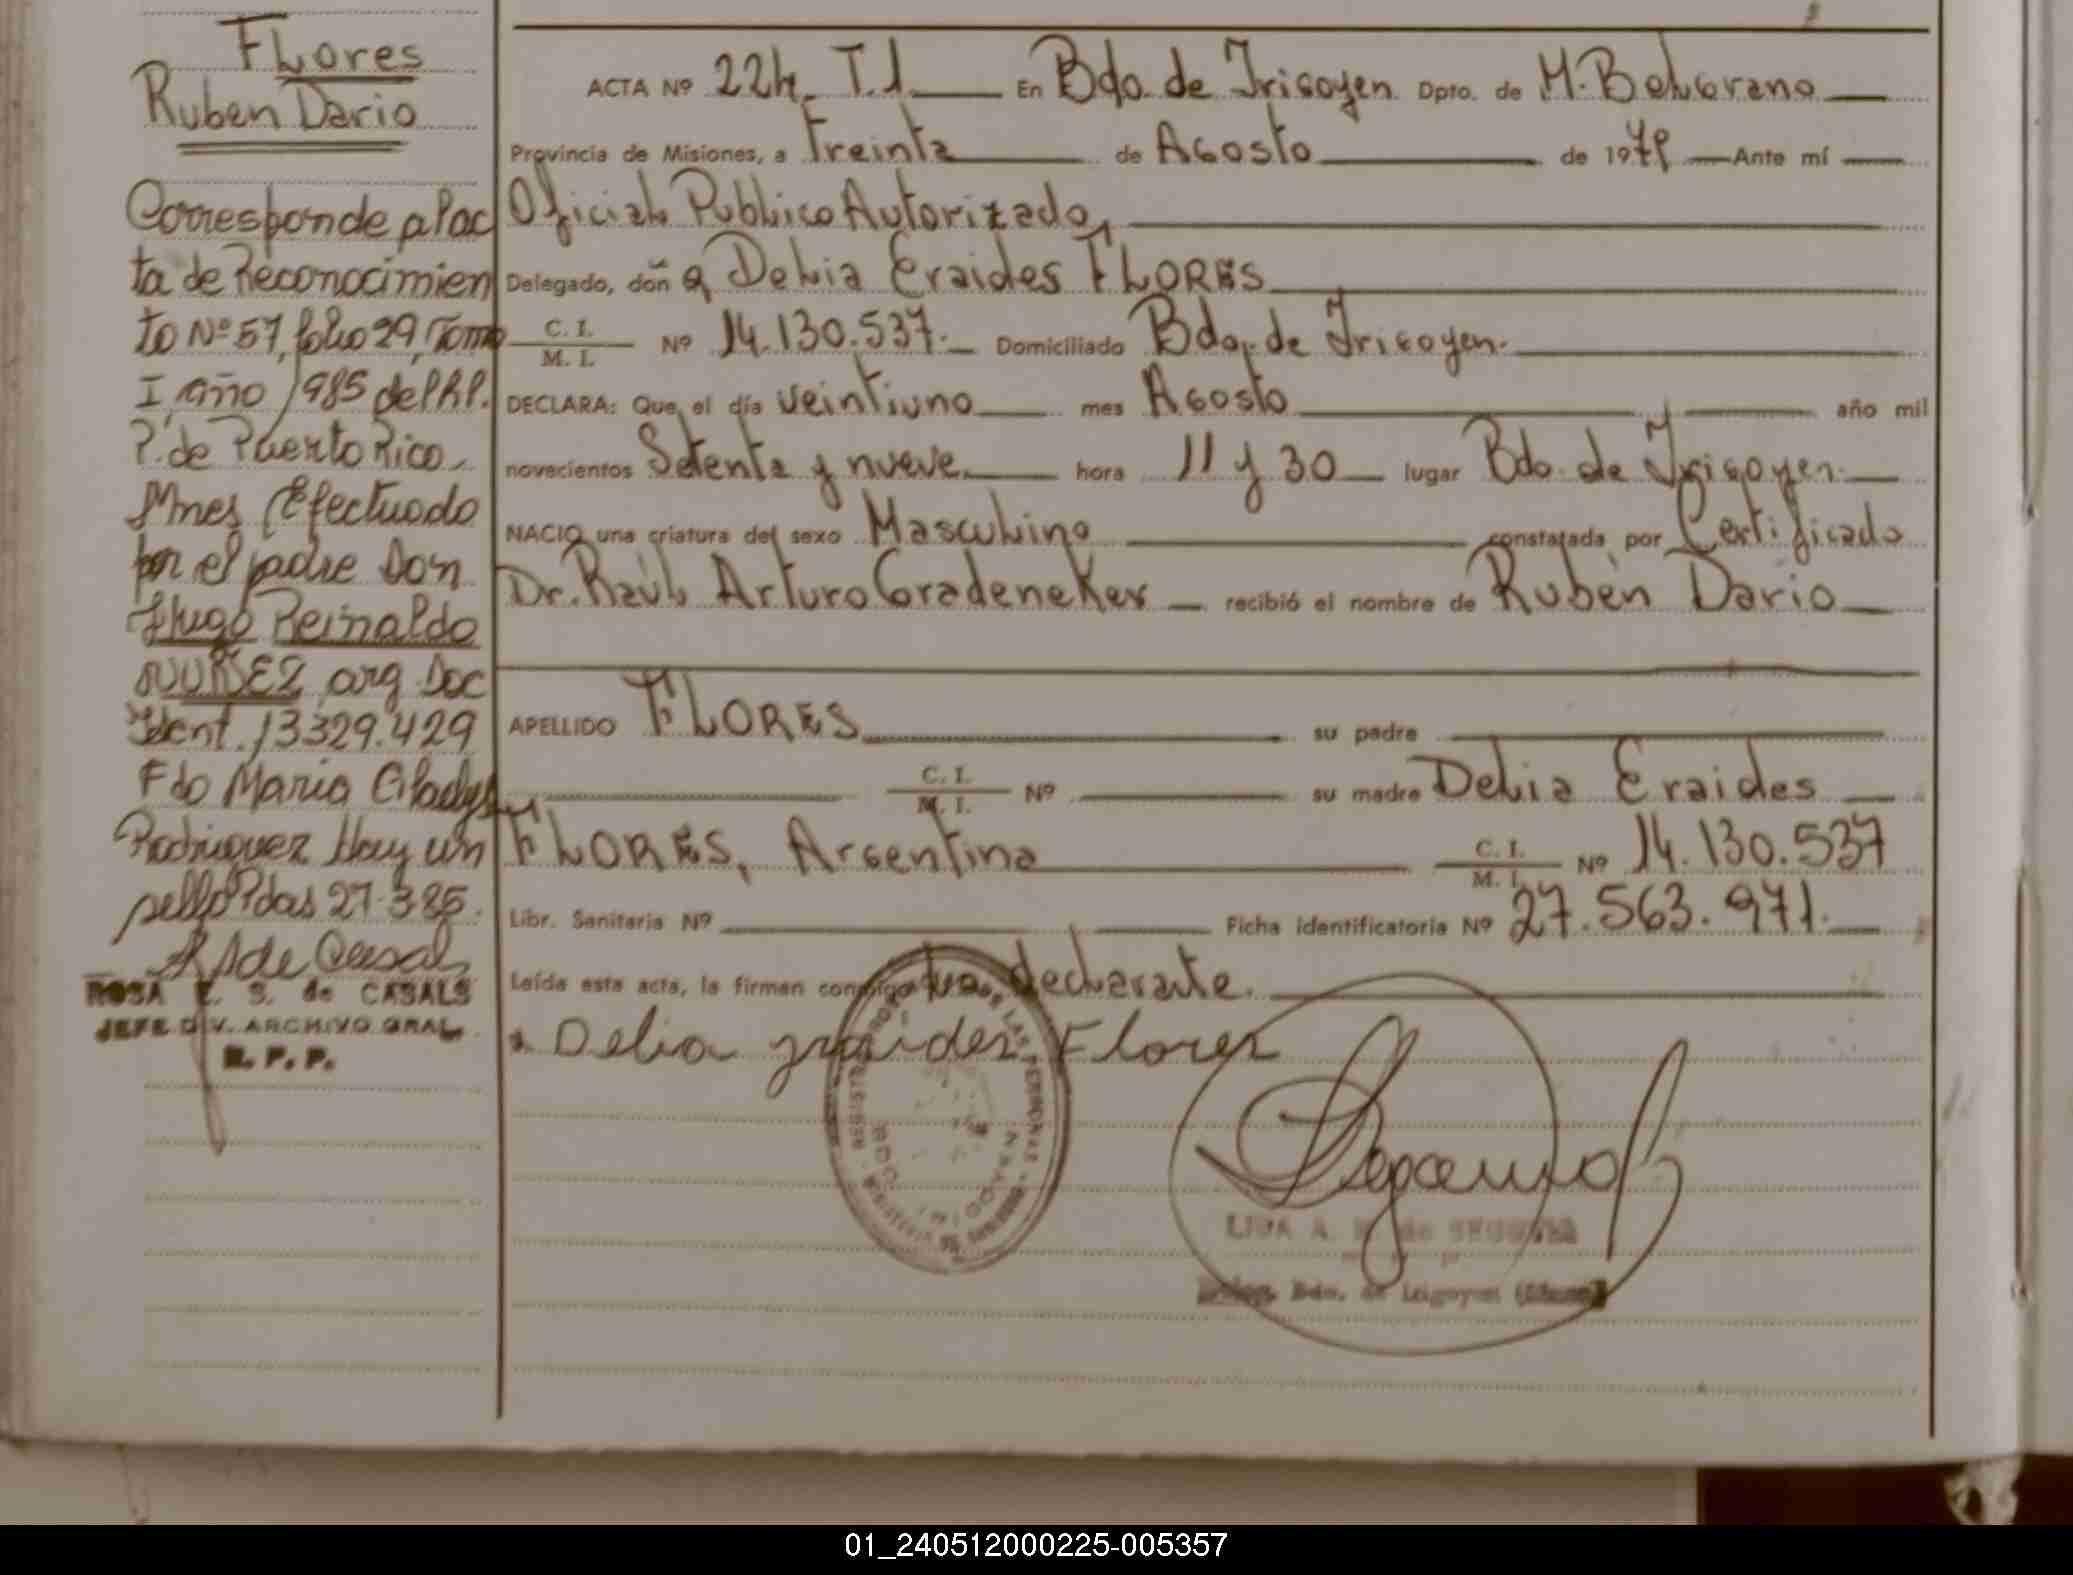 FLores
Ruben Dario
Corresponde al ac
ta de Reconocimien
to Nº 57, folio 29, Tomo
I año 1985 del R.P.
P. de Puerto Rico,
Mnes Efectuado
por el padre Don
Hugo Reinaldo
NUÑEZ arg Doc
Ident. 13329.429
Fdo Maria Gladys
Rodriguez Hay un
sello Pdas 27-3-85.
ROSA E. S. de CASALS
JEFE DIV. ARCHIVO GRAL.
R. P. P.
ACTA Nº 224. T.1. En Bdo. de Irigoyen Dpto. de M. Belgrano
Provincia de Misiones, a Treinta de Agosto de 1979 Ante mí
Oficial Publico Autorizado,
Delegado, doña Delia Eraides FLORES
C. I.
M. I.
Nº 14.130.537. Domiciliado Bdo. de Irigoyen.
DECLARA: Que el día veintiuno mes Agosto año mil
novecientos Setenta y nueve hora 11 y 30 lugar Bdo. de Irigoyen.
NACIO una criatura del sexo Masculino constatada por Certificado
Dr. Raúl Arturo Gradeneker recibió el nombre de Rubén Dario
APELLIDO FLORES su padre
C. I.
M. I.
Nº su madre Delia Eraides
FLORES, Argentina
C. I.
M. I.
Nº 14.130.537
Libr. Sanitaria Nº Ficha identificatoria Nº 27.563.971.
Leída esta acta, la firman conmigo la declarante.
Delia Flores
Bdo. de Irigoyen
01_240512000225-005357